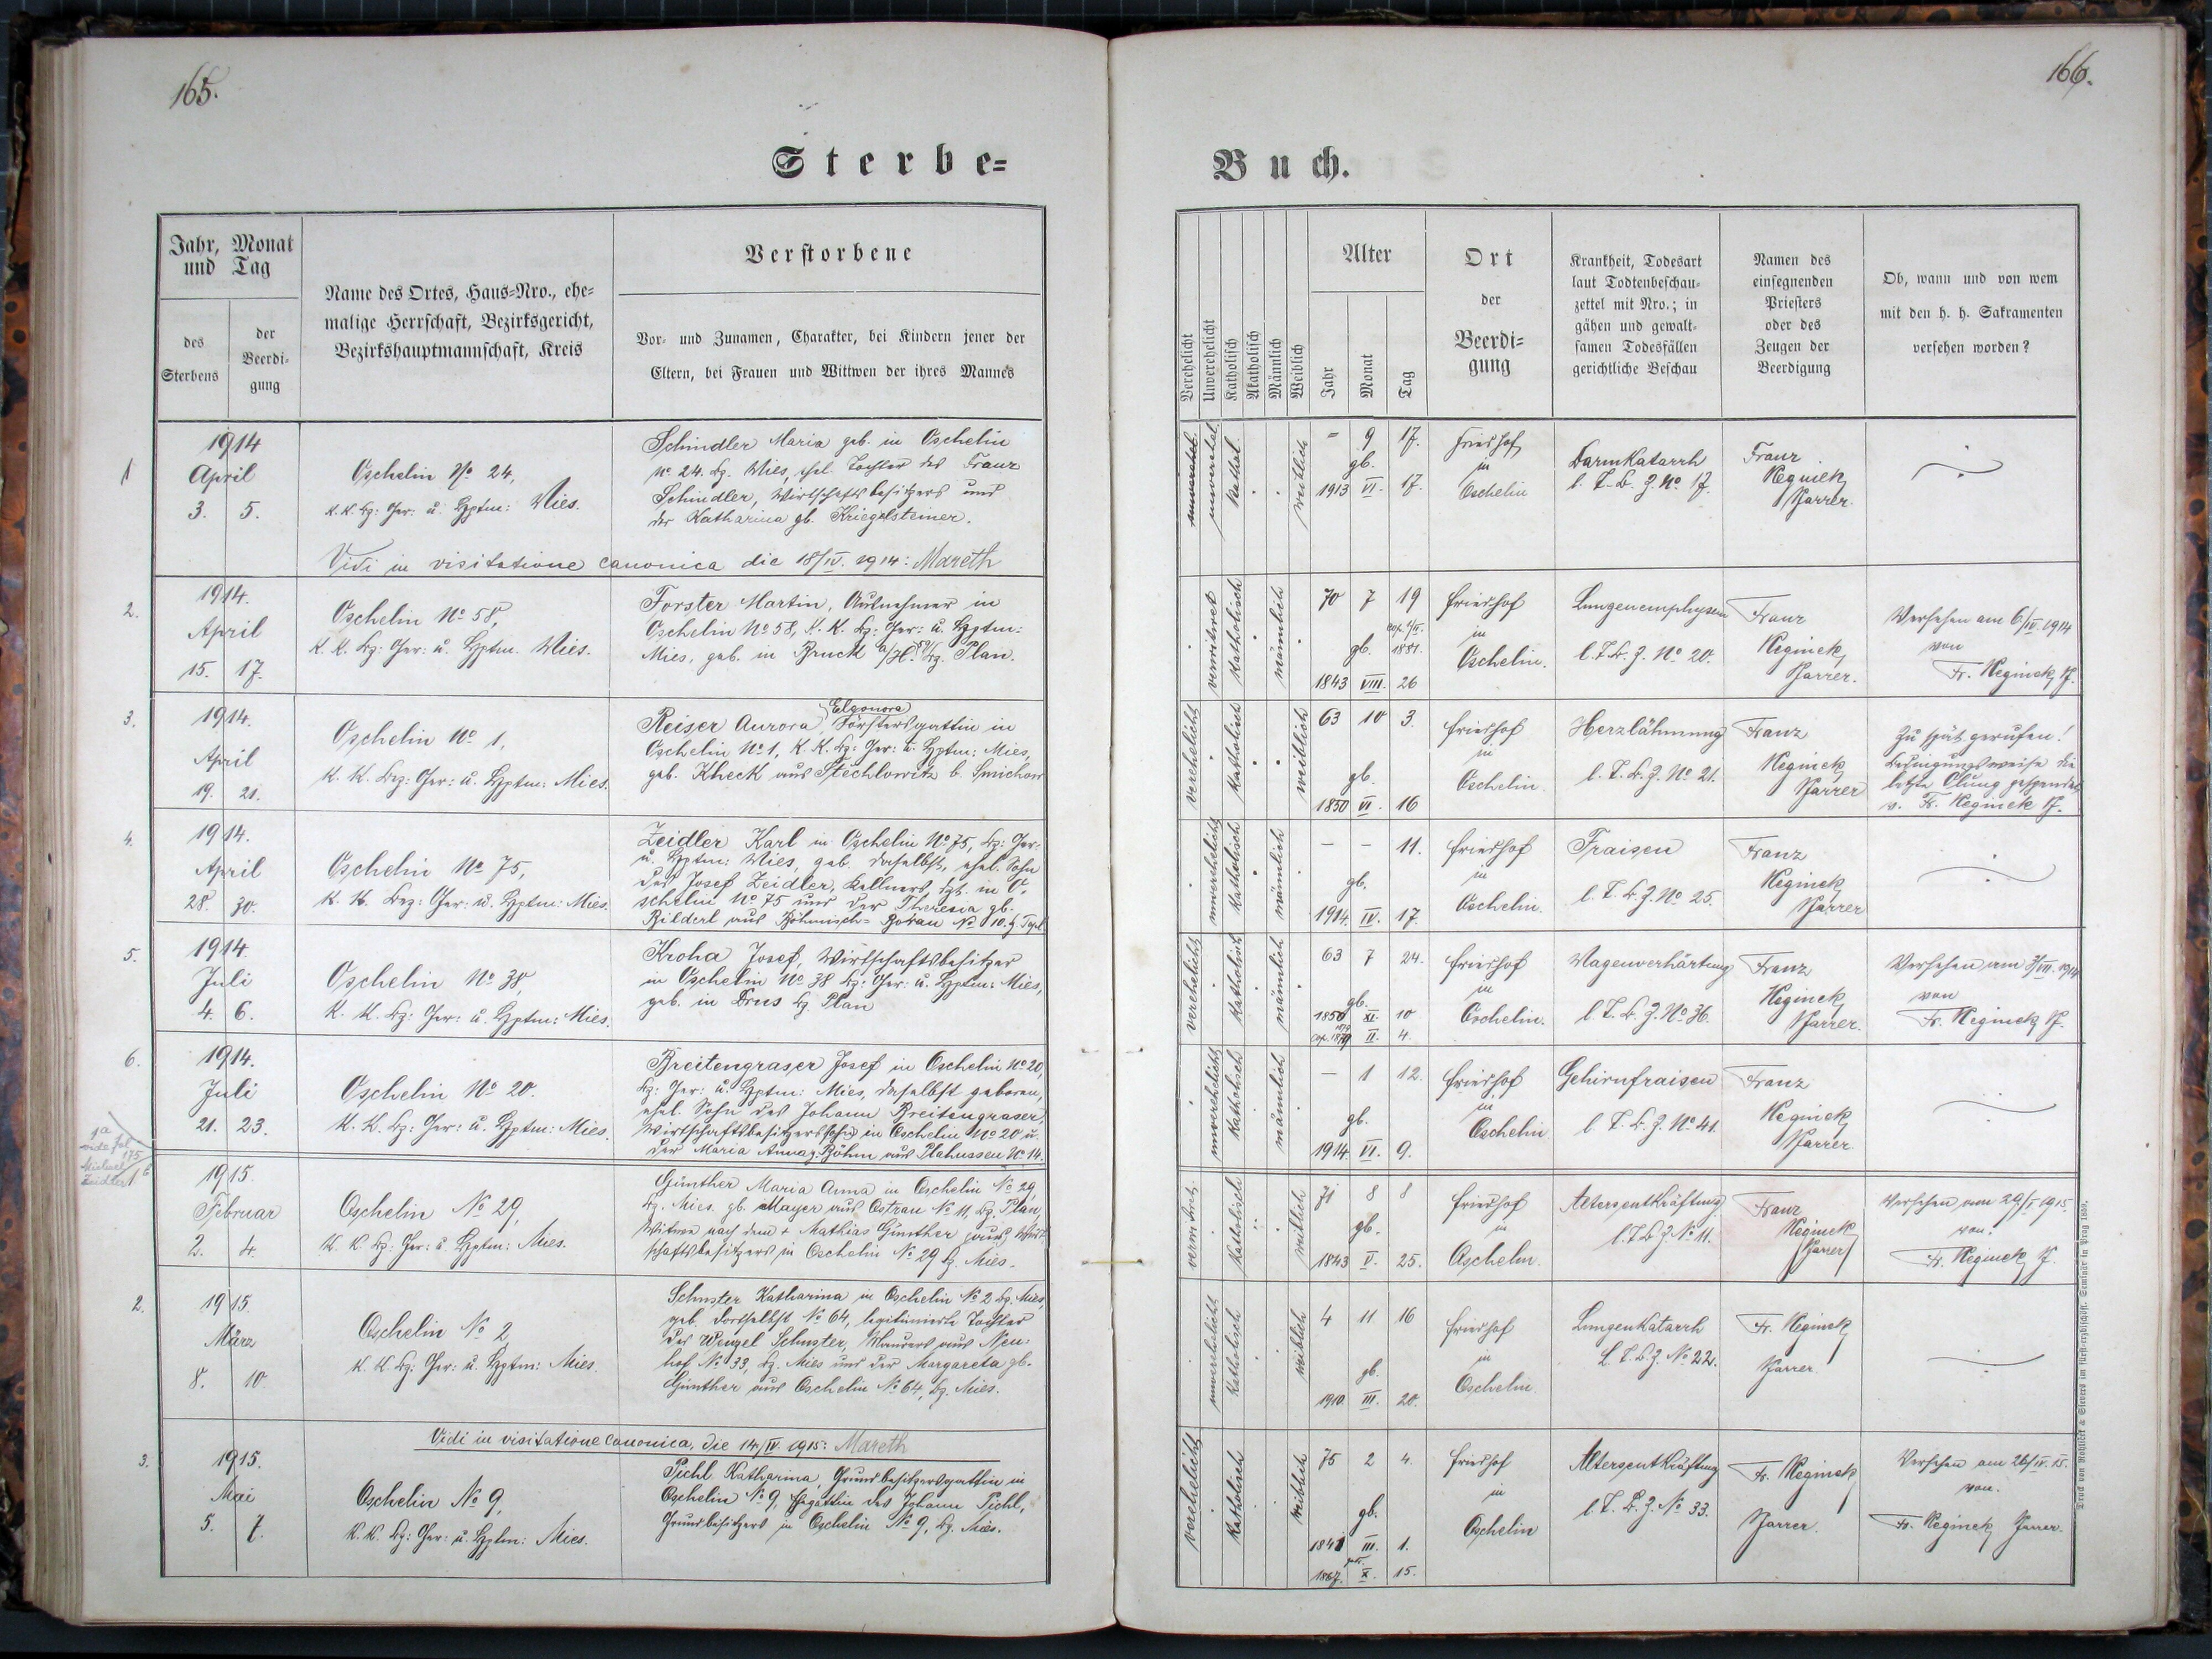 165.
Sterbe=
Jahr, Monat
und Tag
des
Sterbens
der
Beerdi-
gung
Name des Ortes, Haus=Nro., ehe=
malige Herrschaft, Bezirksgericht,
Bezirkshauptmannschaft, Kreis
Verstorbene
Vor- und Zunamen, Charakter, bei Kindern jener der
Eltern, bei Frauen und Wittwen der ihres Mannes
1
1914
April
3. 5.
Oschelin No. 24,
K. K. Bz: Ger: u. Hptm: Mies.
Schindler Maria geb. in Oschelin
No. 24. Bz. Mies, ehel. Tochter des Franz
Schindler, Wirtschaftsbesitzers und
der Katharina gb. Kriegelsteiner.
Vidi in visitatione canonica die 18/IV. 1914: Mareth
2.
1914.
April
15. 17.
Oschelin No 58,
K. K. Bz: Ger: u. Hptm. Mies.
Forster Martin, Ausnehmer in
Oschelin No 58, K. K. Bz: Ger: u. Hptm:
Mies, geb. in Bruck a/H. Bz. Plan.
3.
1914.
April
19. 21.
Oschelin No 1,
K. K. Bez: Ger: u. Hptm: Mies.
Eleonora
Reiser Aurora, Förstersgattin in
Oschelin No 1, K. K. Bz: Ger: u. Hptm: Mies,
geb. Kheck aus Stechlowitz b. Smichow
4.
1914.
April
28. 30.
Oschelin No 75,
K. K. Bez: Ger: u. Hptm: Mies.
Zeidler Karl in Oschelin No 75, Bz: Ger:
u. Hptm: Mies, geb. daselbst, ehel. Sohn
des Josef Zeidler, Kellners, in O-
schelin No 75 und der Theresia gb.
Bilderl aus Böhmisch= No 10.
5.
1914.
Juli
4. 6.
Oschelin No 38,
K. K. Bz: Ger: u. Hptm: Mies.
Kroha Josef, Wirtschaftsbesitzer
in Oschelin No 38 Bz: Ger: u. Hptm: Mies,
geb. in Bz Plan
6.
1914.
Juli
21. 23.
Oschelin No 20.
K. K. Bz: Ger: u. Hptm: Mies.
Breitengraser Josef in Oschelin No 20,
Bz: Ger: u. Hptm: Mies, daselbst geboren,
ehel. Sohn des Johann Breitengraser,
Wirtschaftsbesitzerssohn in Oschelin No 20 u.
der Maria Anna g. Böhm aus Plahussen No 14.
1a
vide fol
175
Michael
Zeidler
1b
1915.
Februar
2. 4.
Oschelin No 29,
K. K. Bz. Ger: u Hptm: Mies.
Günther Maria Anna in Oschelin No 29,
Bz. Mies. gb. Mayer aus Ostrau No 11, Bz. Plan,
Witwe nach dem + Mathias Günther gewes. Wirt-
schaftsbesitzers in Oschelin No 29 Bz. Mies.
2.
1915.
März
8. 10
Oschelin No 2,
K. K. Bz: Ger: u. Hptm: Mies.
Schuster Katharina in Oschelin No 2 Bz. Mies,
geb. dortselbst No 64, legitimierte Tochter
des Wenzel Schuster, Maurers aus Neu-
hof No 33, Bz. Mies und der Margareta gb.
Günther aus Oschelin No 64, Bz. Mies.
Vidi in visitatione canonica, die 14/IV. 1915: Mareth
3.
1915.
Mai
5. 7.
Oschelin No 9,
K. K. Bz: Ger: u. Hptm: Mies.
Pichl Katharina, Grundbesitzersgattin in
Oschelin No 9, Ehegattin des Johann Pichl,
Grundbesitzers in Oschelin No 9, Bz. Mies.
166.
Buch.
Verehelicht
Unverehelicht
Katholisch
Akatholisch
Männlich
Weiblich
Alter
Jahr
Monat
Tag
Ort
der
Beerdi=
gung
Krankheit, Todesart
laut Todtenbeschau-
zettel mit Nro.; in
gähen und gewalt-
samen Todesfällen
gerichtliche Beschau
Namen des
einsegnenden
Priesters
oder des
Zeugen der
Beerdigung
Ob, wann und von wem
mit den h. h. Sakramenten
versehen worden?
kathol.
weiblich
= 9 17.
gb.
1913 VI. 17.
Friedhof
in
Oschelin
Darmkatarrh
l. T. B. Z. No 17.
Franz
Reginek
Pfarrer.
verwitwet
katholisch
männlich
70 7 19
cop.
1881.
gb.
1843 VIII. 26
Friedhof
in
Oschelin.
Lungenemphysem
l. T. B. Z. No 20.
Franz
Reginek,
Pfarrer.
Versehen am 6/IV. 1914
von
Fr. Reginek, Pf.
verehelicht
katholisch
weiblich
63 10 3.
gb.
1850 VI. 16
Friedhof
in
Oschelin.
Herzlähmung
l. T. B. Z. No 21.
Franz
Reginek
Pfarrer
Zu spät gerufen!
Bedingungsweise die
letzte Ölung gespendet
v. Fr. Reginek Pf.
unverehelicht
katholisch
männlich
– – 11.
gb.
1914. IV. 17.
Friedhof
in
Oschelin.
Fraisen
l. T. B. Z. No 25.
Franz
Reginek
Pfarrer
verehelicht
katholisch
männlich
63 7 24.
gb.
1850 XI. 10
cop. 1879 II. 4.
Friedhof
in
Oschelin.
Magenverhärtung
l. T. B. Z. No 36.
Franz
Reginek
Pfarrer.
Versehen am 3/VII. 1914
von
Fr. Reginek Pf.
unverehelicht
katholisch
männlich
– 1 12.
gb.
1914. VI. 9.
Friedhof
in
Oschelin
Gehirnfraisen
l. T. B. Z. No 41.
Franz
Reginek
Pfarrer.
verwitwet.
katholisch
weiblich
71 8 8
gb.
1843 V. 25.
Friedhof
in
Oschelin.
Altersentkräftung
l. T. B. Z. No 11.
Franz
Reginek
Pfarrer
Versehen am 29/I. 1915.
von.
Fr. Reginek, Pf.
unverehelicht
katholisch
weiblich
4 11 16
gb.
1910. III. 20.
Friedhof
in
Oschelin.
Lungenkatarrh
L. T. B. Z. No 22.
Fr. Reginek
Pfarrer.
verehelicht
katholisch
weiblich
75 2 4.
gb.
1841 III. 1.
1867. X. 15.
Friedhof
in
Oschelin
Altersentkräftung
l. T. B. Z. No 33.
Fr. Reginek
Pfarrer.
Versehen am 26/IV. 15.
von.
Fr. Reginek Pfarrer.